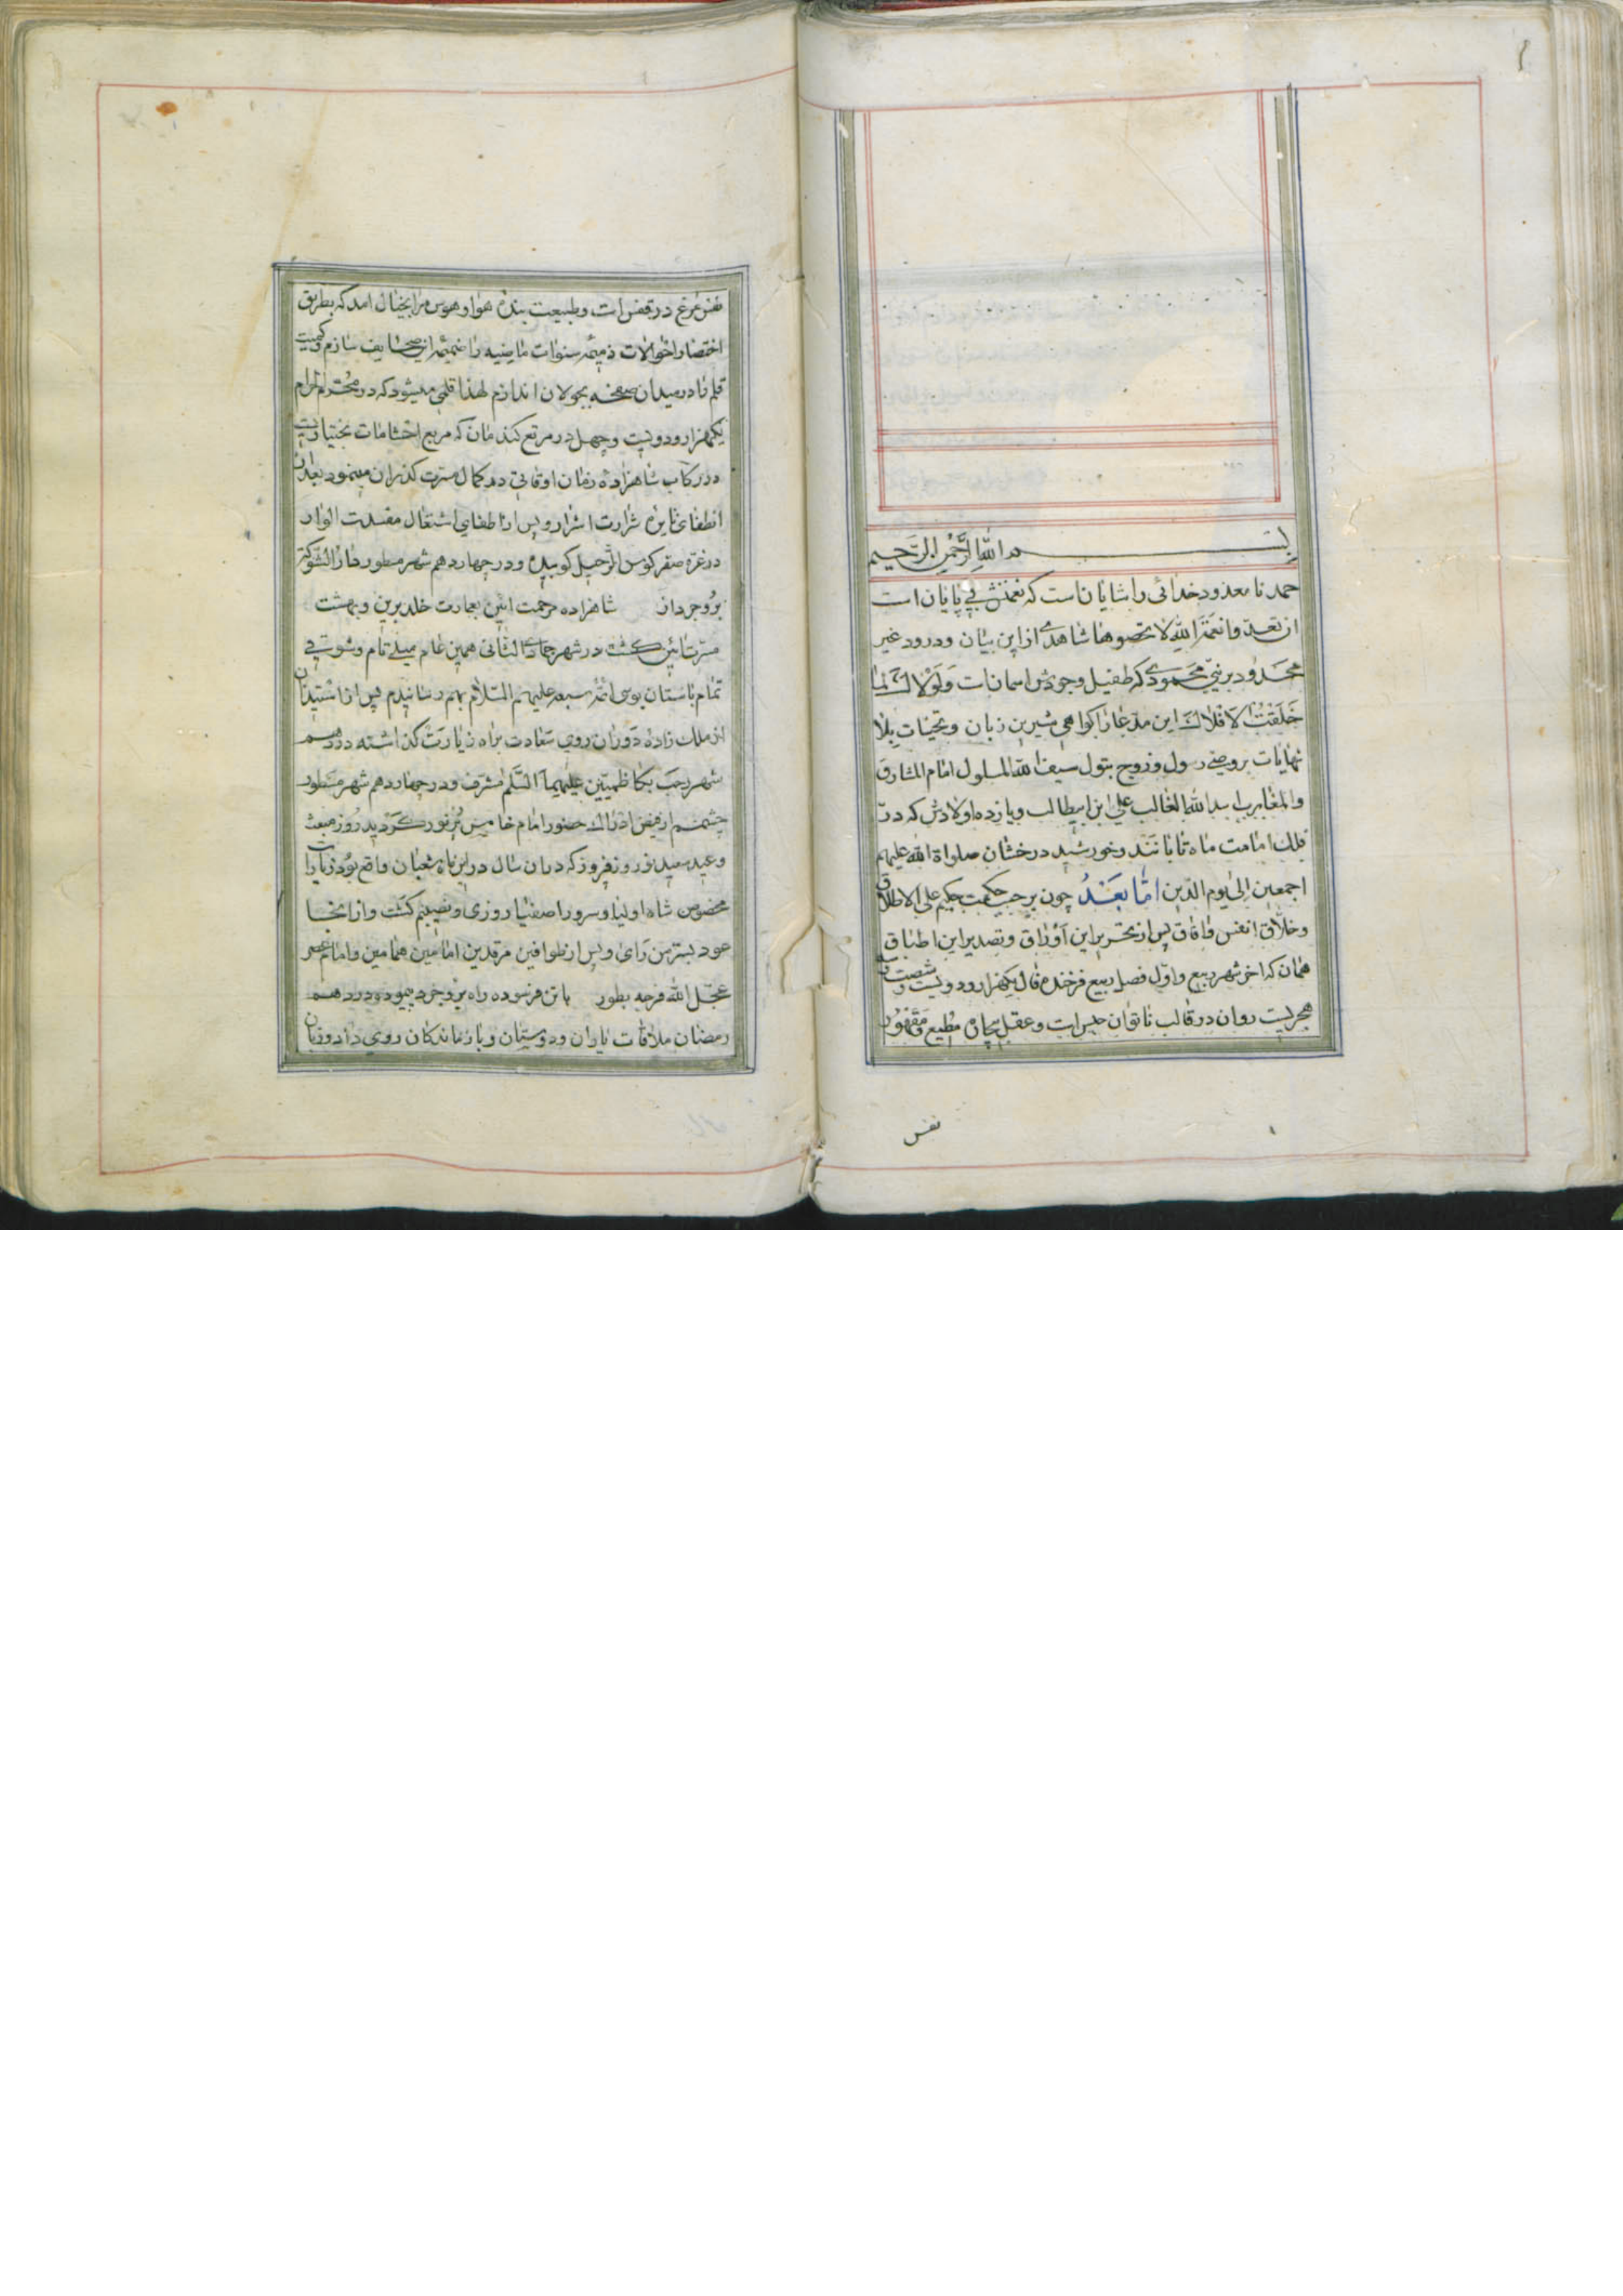 بسم الله الرحمن الرحیم
حمد نامعدود خدائی را شایان است که نعمتش بی پایان است
ان تعدوا نعمة الله لا تحصوها شاهدی از این بیان و درود غیر
محدود بر نبی محمودی که طفیل وجودش اسمانات و لولاک لما
خلقت الافلاک این مدعا را کواهی شیرین زبان و تحیات بلا
نهایات بر وصی رسول و زوج بتول سیف الله المسلول امام المشارق
والمغارب اسد الله الغالب علی ابن ابیطالب و یازده اولادش که در
فلک امامت ماه تابانند و خورشید درخشان صلواة الله علیهم
اجمعین الی یوم الدین اما بعد چون بر حسب حکمت حکیم علی الاطلاق
و خلاق انفس و افاق پس از تحریر این اوراق و تصدیر این اطباق
همان که اخر شهر ربیع و اول فصل ربیع فرخنده فال یکهزار و دویست و شصت و
هجریست روان در قالب ناتوان حیرانست و عقل بیچاره مطیع و مقهور
نفس
نفس مرغ در قفس است و طبیعت بنده هوا و هوس مرا بخیال امد که بطریق
اختصار احوالات ذمیمه سنوات ماضیه را ضمیمه این صحایف سازم و کمیت
قلم را در میدان صفحه بجولان اندازم لهذا قلمی میشود که در محرم الحرام
یکهزار و دویست و چهل در مرتع کندمان که مربع احشامات بختیاریست
در رکاب شاهزاده زمان اوقاتی در کمال مسرت کذران مینمود بعد از
انطفای نایره شرارت اشرار و پس از اطفای اشتعال مفسدت الوار
در غره صفر کوس الرحیل کوبیده و در چهاردهم شهر مسطور دار الشوکة
بروجرد از شاهزاده مرحمت ائین بعمارت خلد برین و بهشت
مسرت ائین کشت در شهر جمادی الثانی همین عام میلی تام و شوقی
تمام باستان بوسی ائمه سبعه علیهم السلام بهم رسانیدم پس از استیذان
از ملک زاده دوران روی سعادت براه زیارت کذاشته در دهم
شهر رجب بکاظمیین علیهما السلم مشرف و در چهاردهم شهر مسطور
چشمم از فیض ادراک حضور امام خامس پرنور کردید روز مبعث
و عید سعید نوروز فیروز که دران سال در این ماه شعبان واقع بود زیارت
مخصوص شاه اولیا و سرور اصفیا روزی و نصیبم کشت و از انجا
عود بسر من رای و پس از طواف مرقدین امامین همامین و امام عصر
عجل الله فرجه بطور با تن فرسوده راه بروجرد پیموده در دهم
رمضان ملاقات یاران و دوستان و بازماندکان روی داد و زبان